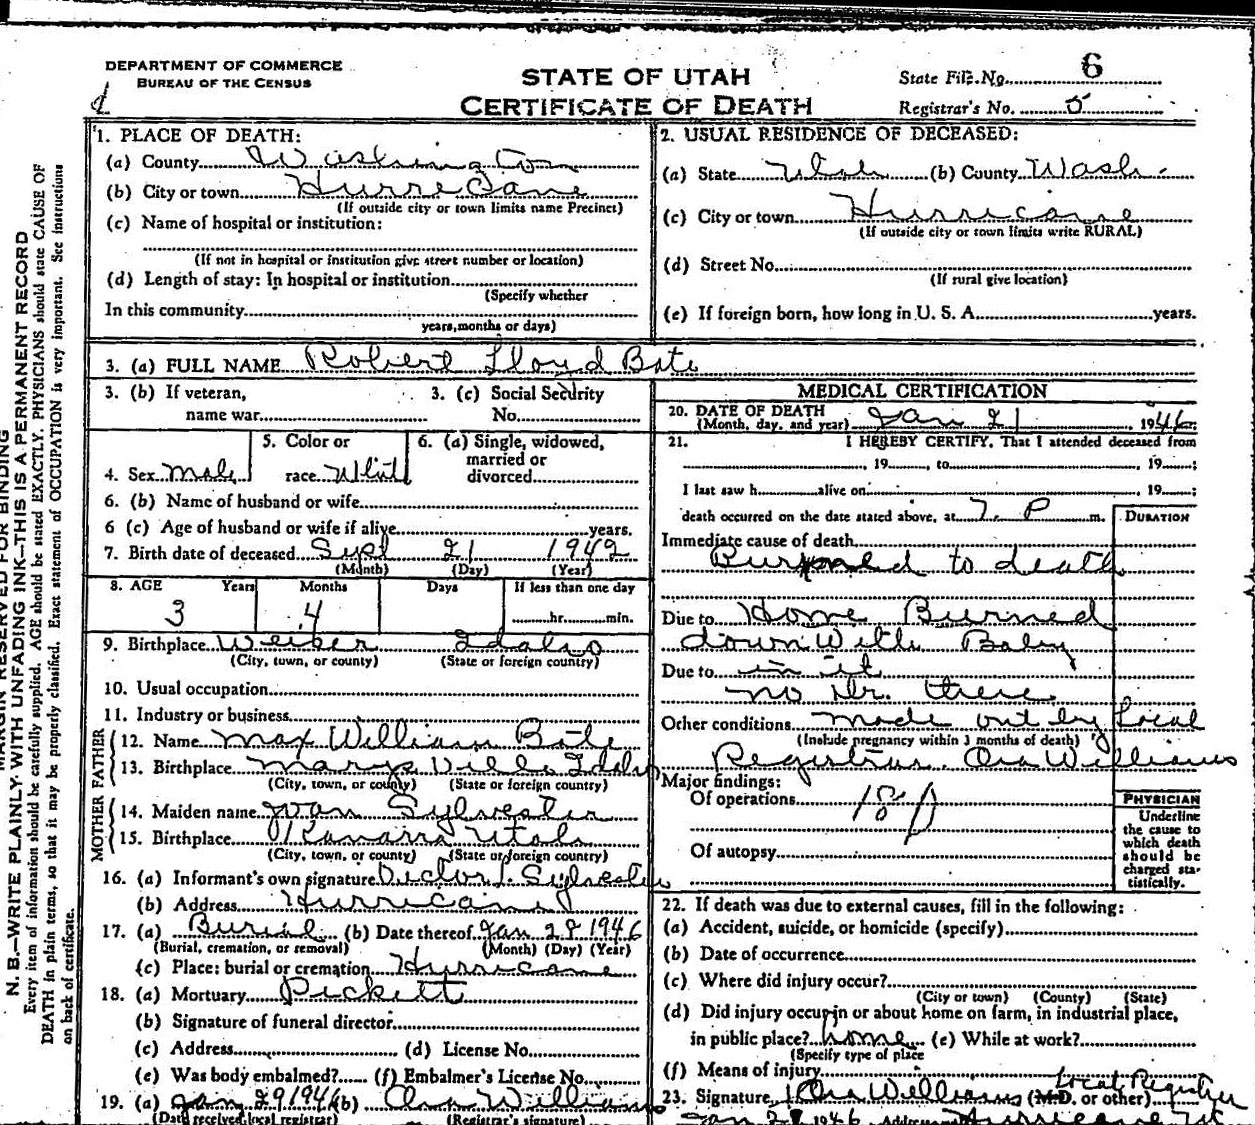 DEPARTMENT OF COMMERCE
BUREAU OF THE CENSUS
STATE OF UTAH
CERTIFICATE OF DEATH
State File No. 6
Registrar's No. 5
MARGIN RESERVED FOR BINDING
N. B.—WRITE PLAINLY, WITH UNFADING INK—THIS IS A PERMANENT RECORD
Every item of information should be carefully supplied. AGE should be stated EXACTLY. PHYSICIANS should state CAUSE OF
DEATH in plain terms, so that it may be properly classified. Exact statement of OCCUPATION is very important. See instructions
on back of certificate.
1. PLACE OF DEATH:
(a) County Washington
(b) City or town Hurricane
(If outside city or town limits name Precinct)
(c) Name of hospital or institution:
(If not in hospital or institution give street number or location)
(d) Length of stay: In hospital or institution
(Specify whether
In this community
years, months or days)
2. USUAL RESIDENCE OF DECEASED:
(a) State Utah (b) County Wash.
(c) City or town Hurricane
(If outside city or town limits write RURAL)
(d) Street No.
(If rural give location)
(e) If foreign born, how long in U. S. A. years.
3. (a) FULL NAME Robert Lloyd Bate
3. (b) If veteran,
name war
3. (c) Social Security
No.
4. Sex Male
5. Color or
race Whit
6. (a) Single, widowed,
married or
divorced
6. (b) Name of husband or wife
6 (c) Age of husband or wife if alive years.
7. Birth date of deceased Sept 21 1942
(Month) (Day) (Year)
8. AGE Years Months Days If less than one day
3 4 hr. min.
9. Birthplace Weiser Idaho
(City, town, or county) (State or foreign country)
10. Usual occupation
11. Industry or business
FATHER
12. Name Max William Bate
13. Birthplace Marysville Idaho
(City, town, or county) (State or foreign country)
MOTHER
14. Maiden name Sylvester
15. Birthplace Kanarra Utah
(City, town, or county) (State or foreign country)
16. (a) Informant's own signature Victor I. Sylvester
(b) Address Hurricane
17. (a) Burial (b) Date thereof Jan 28 1946
(Burial, cremation, or removal) (Month) (Day) (Year)
(c) Place: burial or cremation Hurricane
18. (a) Mortuary Pickett
(b) Signature of funeral director
(c) Address (d) License No.
(e) Was body embalmed? (f) Embalmer's License No.
19. (a) Jan 29 1946 (b) Ora Williams
(Date received local registrar) (Registrar's signature)
MEDICAL CERTIFICATION
20. DATE OF DEATH
(Month, day, and year) Jan 21, 1946;
21. I HEREBY CERTIFY, That I attended deceased from
, 19 , to , 19 ;
I last saw h alive on , 19 ;
death occurred on the date stated above, at 7. P m.
DURATION
Immediate cause of death
Burned to death
Due to Home Burned
down With Baby
Due to in it
no Dr. there
Other conditions made out by Local
(Include pregnancy within 3 months of death)
Registrar. Ora Williams
Major findings:
Of operations
Of autopsy
PHYSICIAN
Underline
the cause to
which death
should be
charged sta-
tistically.
22. If death was due to external causes, fill in the following:
(a) Accident, suicide, or homicide (specify)
(b) Date of occurrence
(c) Where did injury occur?
(City or town) (County) (State)
(d) Did injury occur in or about home on farm, in industrial place,
in public place? home (e) While at work?
(Specify type of place
(f) Means of injury
Local Registrar
23. Signature Ora Williams (M.D. or other)
Jan 1946 Address Hurricane Ut